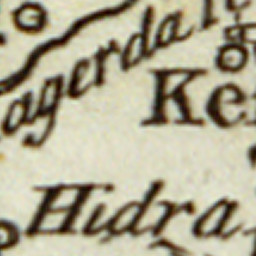 agerda
Ke
Hidra